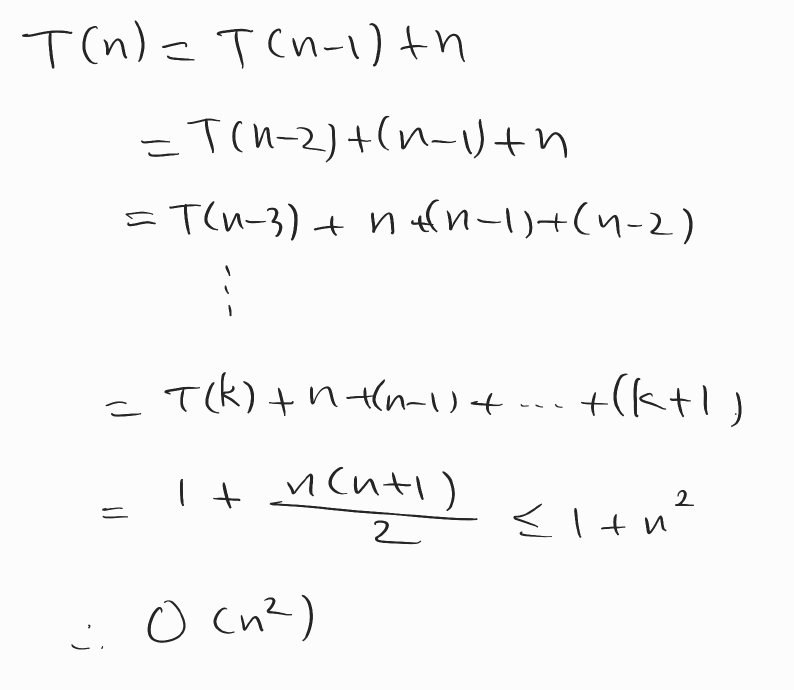 T(n) = T(n-1)+n
= T(n-2)+(n-1)+n
= T(n-3) + n+(n-1)+(n-2)
⋮
= T(k)+n+(n-1)+...+(k+1)
= 1 + n(n+1)/2 ≤ 1+n²
∴ O(n²)